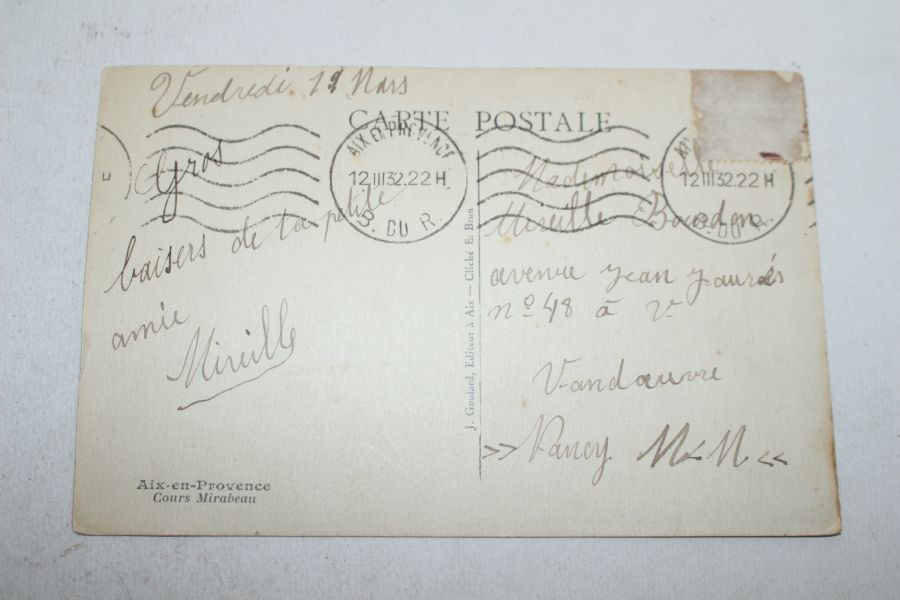 Vendredi 11 Mars
CARTE POSTALE
AIX-EN-PROVENCE
12 III 32. 22 H
DU R.
12 III 32. 22 H
DU R.
Gros
baisers de ta petite
amie
Mireille
Aix-en-Provence
Cours Mirabeau
J. Goulard, Editeur à Aix — Cliché E. Brun
Mademoiselle
Mireille
avenue Jean Jaurés
nº 48 à V
Vandœuvre
»Nancy M&M«